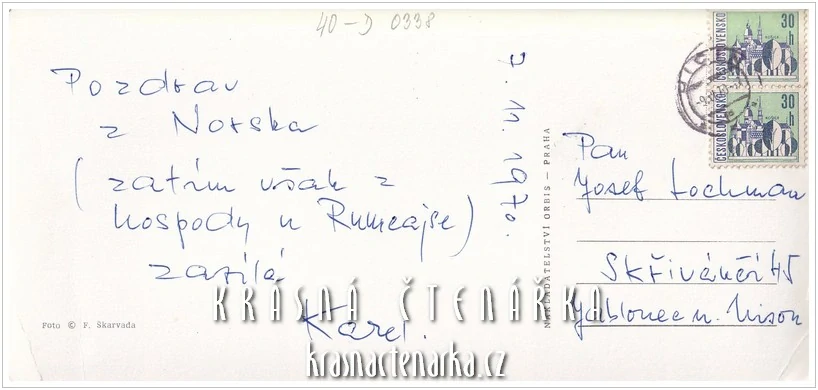 40-D 0338
Pozdrav
z Norska
(zatím však z
hospody u Rumcajse)
zasílá
Karel.
7. 11. 1970.
Foto © F. Škarvada
NAKLADATELSTVÍ ORBIS — PRAHA
ČESKOSLOVENSKO
30 h
ČESKOSLOVENSKO
30 h
Pan
Josef Lochman
Skřivánčí 45
Jablonec n. Nisou
KRÁSNÁ ČTENÁŘKA
krasnactenarka.cz